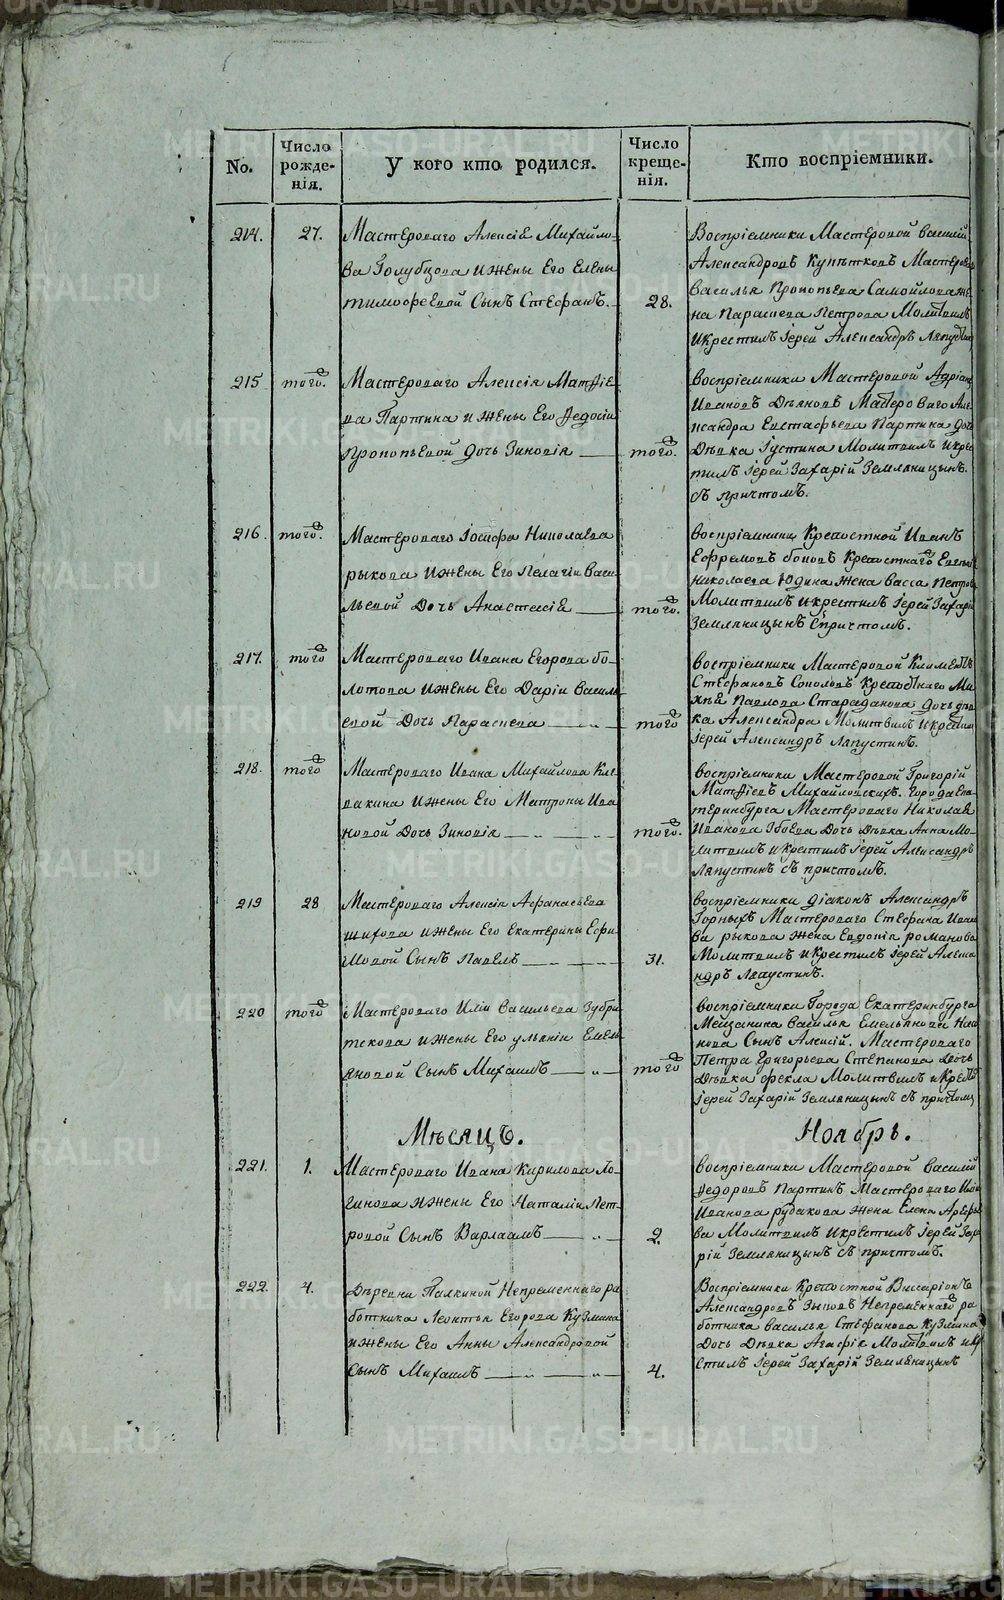 No.
Число рожде-нія.
У кого кто родился.
Число креще-нія.
Кто воспріемники.
214.
27.
Мастероваго Алексія Михайло-
ва Голубцова и жены Его Елены
тимофеевой Сынъ Стефанъ.
28.
Воспріемники Мастеровой василій
Александровъ Мастеров
василья Прокопьева Самойлова же
на Параскева Петрова Молитвилъ
и крестилъ Іерей Александръ Ляпустин
215
того.
Мастероваго Алексія Матфіе-
ва Партина и жены Его Федосіи
прокопьевой дочь Зиновія
того.
воспріемники Мастеровой Адріанъ
Ивановъ Мастероваго Але
ксандра Евстафьева Партина дочь
Дѣвка Іустина Молитвилъ и кре
тилъ Іерей Захарій Земляницынъ.
съ причтомъ.
216
того.
Мастероваго Іосифа Николаева
рыкова и жены Его Пелагіи Васи-
льевой Дочь Анастасія
того.
воспріемники Крепостной Иванъ
Ефремовъ боковъ Крепостнаго
николаева Юдина жена васса петров
Молитвилъ и крестилъ Іерей Захарій
Земляницынъ с причтомъ.
217.
того
Мастероваго Ивана Егорова бо-
лотова и жены Его Даріи василь
евой Дочь Параскева
того
воспріемники Мастеровой Климентъ
Стефановъ Соколовъ Крепостнаго Ми
хѣя Павлова дочь дѣв
ка Александра Молитвилъ и крестил
Іерей Александръ Ляпустинъ.
218.
того
Мастероваго Ивана Михайлова Кле
вакина и жены Его Матроны Ива
новой Дочь Зиновія
того.
воспріемники Мастеровой Григорій
Матфіевъ Михайловскихъ. города Ека
теринбурга Мастероваго Николая
Иванова Зобева Дочь Дѣвка Анна Мо-
литвилъ и крестилъ Іерей Александръ
Ляпустинъ съ пристомъ.
219
28
Мастероваго Алексія Афанасьева
шихова и жены Его Екатерины Ефи
мовой Сынъ Павелъ
31.
воспріемники діаконъ Александръ
Горныхъ Мастероваго Стефана Ивано
ва рыкова жена Евдокія романова
Молитвилъ и крестилъ Іерей Алекса
ндръ Ляпустинъ.
220
того
Мастероваго Иліи Васильева Зубри
тскова и жены Его ульяніи Емель
яновой Сынъ Михаилъ
того
воспріемники Города Екатеринбурга
Мещанина Василья Емельянова
Сынъ Алексій. Мастероваго
Петра Григорьева Степанова Дочь
Дѣвка фекла Молитвилъ и Крестил
Іерей Захарій Земляницынъ съ причтомъ
Мѣсяцъ.
Ноябрь.
221.
1.
Мастероваго Ивана Кирилова Ло-
гинова и жены Его Наталіи Пет-
ровой Сынъ Варлаамъ
2.
воспріемники Мастеровой Василій
Федоровъ Партинъ Мастероваго Иліи
Иванова рудакова жена Елена Арефь
ва Молитвилъ и крестилъ Іерей Заха
рій Земляницынъ съ причтомъ.
222.
4.
Деревни Палкиной Непременнаго ра
ботника Леонтья Егорова Кузмина
и жены Его Анны Александровой
Сынъ Михаилъ
4.
Воспріемники Крепостной Виссаріонъ
Александровъ Зыковъ Непременнаго ра
ботника василья Стефанова Кузмина
Дочь Дѣвка Агафія Молитвилъ и кре
стилъ Іерей Захарій Земляницынъ
METRIKI.GASO-URAL.RU